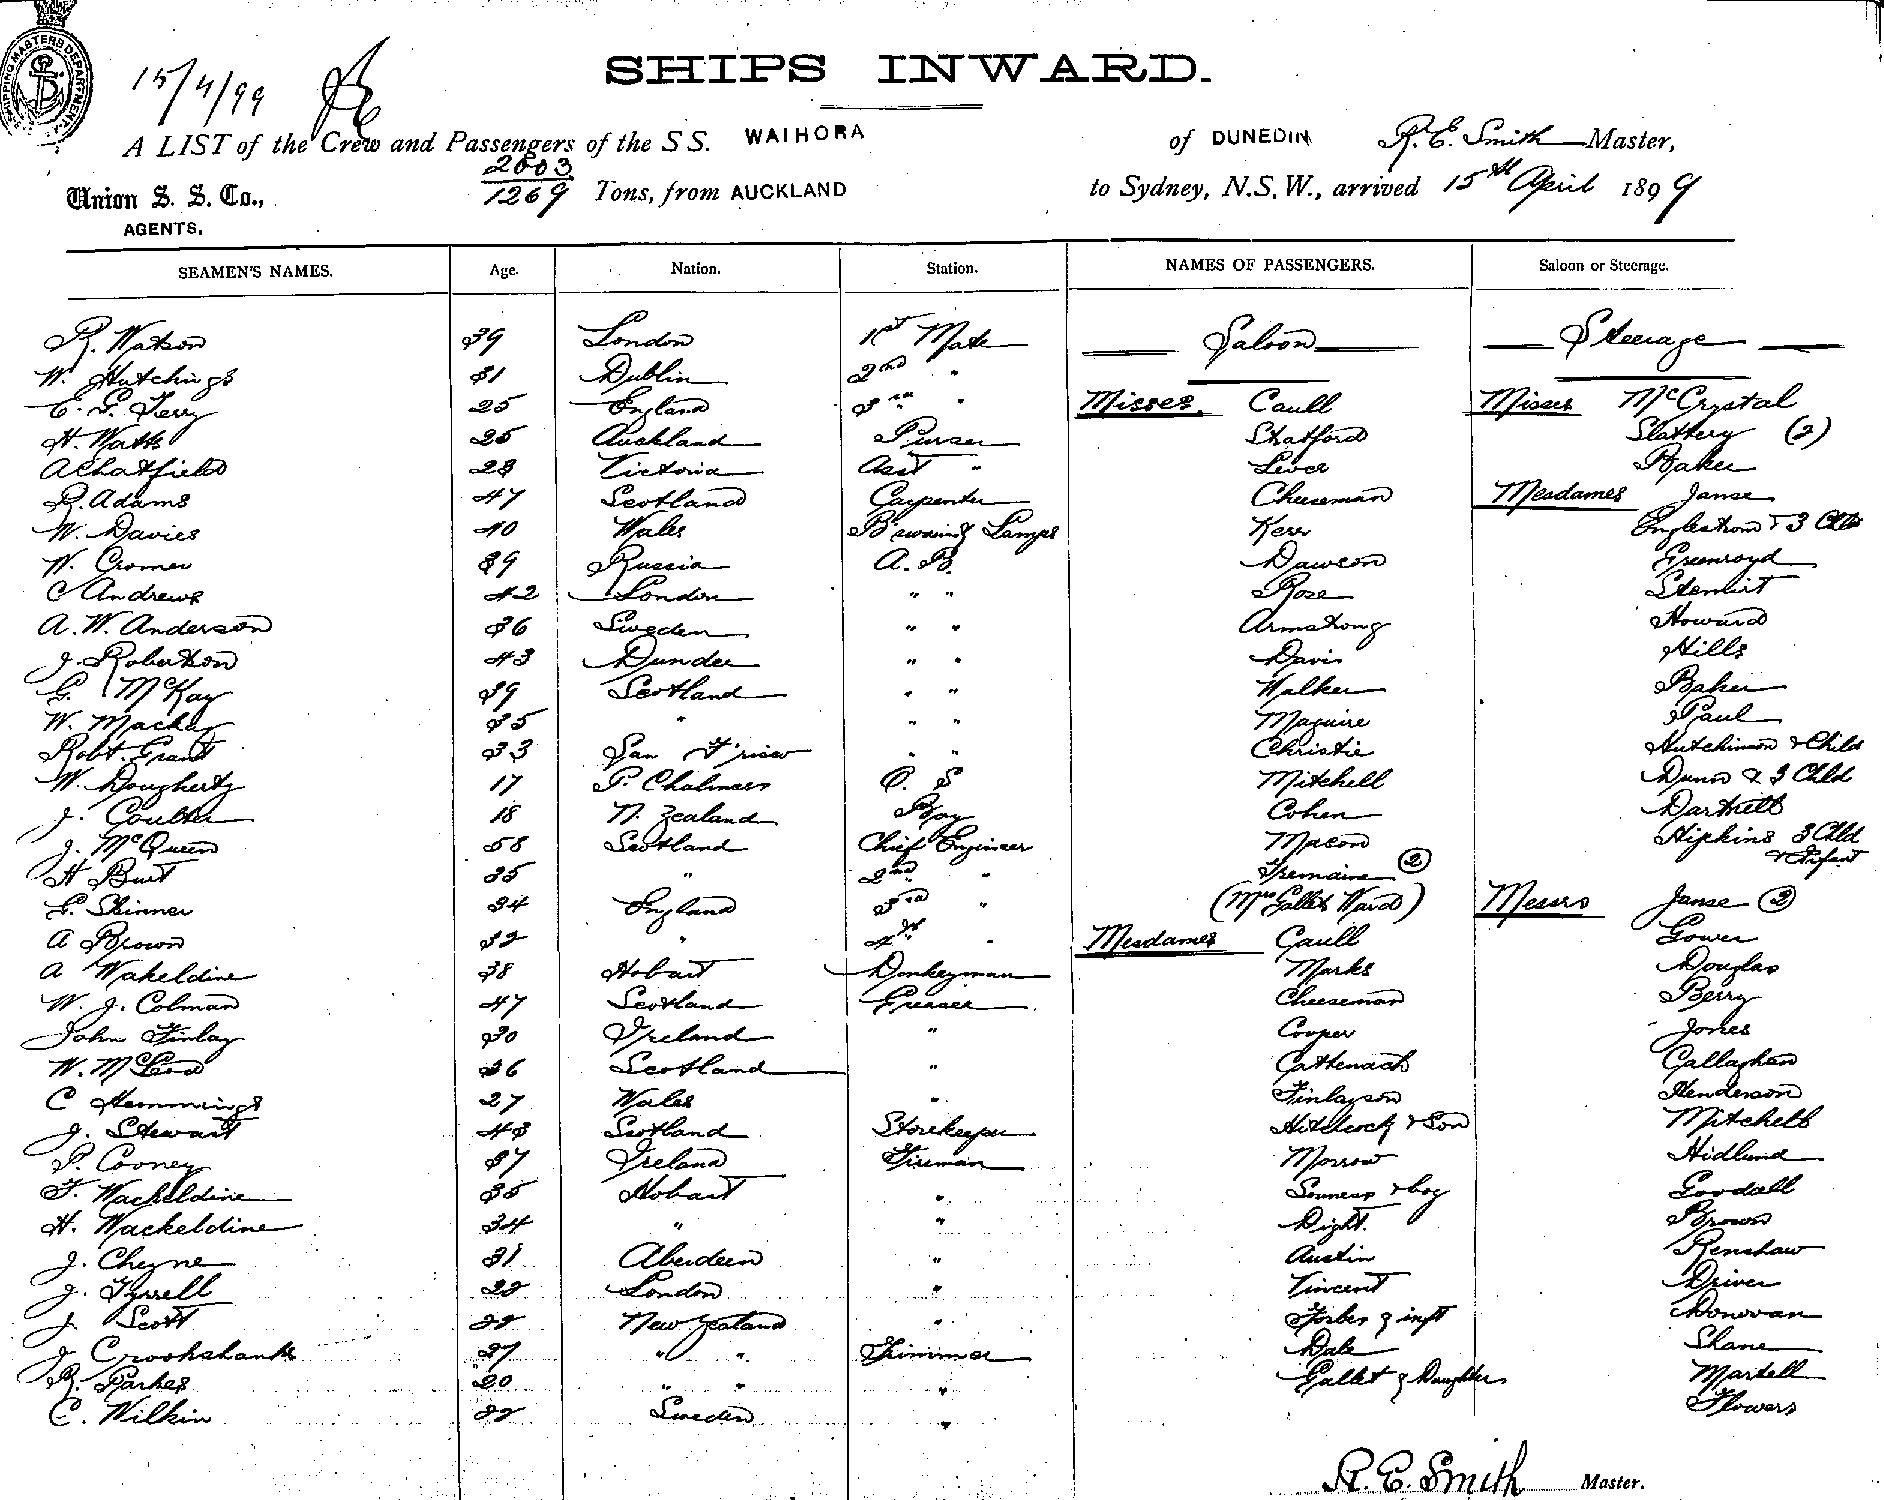 SHIPPING MASTERS DEPARTMENT
15/4/99
SHIPS INWARD.
A LIST of the Crew and Passengers of the S S. WAIHORA of DUNEDIN R. E. Smith Master,
Union S. S. Co., 2003/1269 Tons, from AUCKLAND to Sydney, N.S.W., arrived 15th April 1899
AGENTS.
SEAMEN'S NAMES. Age. Nation. Station. NAMES OF PASSENGERS. Saloon or Steerage.
R. Watson 39 London 1st Mate Saloon Steerage
W. Hutchings 31 Dublin 2nd "
E. G. Ferry 25 England 3rd " Misses. Caull Misses McCrystal
H. Watts 25 Auckland Purser Statford Slattery (2)
A Chatfield 28 Victoria Asst " Lever Baker
R. Adams 47 Scotland Carpenter Cheeseman Mesdames Janse
W. Davies 40 Wales B'swain & Lamps Kerr Englestrom & 3 Chld
W. Cromer 39 Russia A. B. Dawson Greenroyd
C Andrews 42 London " " Rose
A. W. Anderson 36 Sweden " " Armstrong Howard
J. Robertson 43 Dundee " " Davis Hills
G. McKay 39 Scotland " " Walker Baker
W. Mackay 35 " " " Maguire Paul
Robt. Grant 33 San Frisco " " Christie Hutchinson & Child
W. Dougherty 17 P. Chalmers O. S Mitchell Dunn & 3 Chld
J. Coulter 18 N. Zealand Boy Cohen Dartnell
J. McQueen 58 Scotland Chief Engineer Macon Hipkins 3 Chld
& Infant
H Burt 35 " 2nd " Tremaine (2)
G. Skinner 34 England 3rd " (Mrs Gallet Ward) Messrs Janse (2)
A Brown 32 " 4th " Mesdames Caull Gower
A Wakeldine 38 Hobart Donkeyman Marks Douglas
W. J. Colman 47 Scotland Greaser Cheeseman Berry
John Finlay 30 Ireland " Cooper Jones
W. McLeod 36 Scotland " Cattenach Callaghan
C Hemmings 27 Wales " Finlayson Henderson
J. Stewart 43 Scotland Storekeeper Hitchcock & Son Mitchell
P. Cooney 37 Ireland Fireman Morrow Hidlund
F. Wackeldine 35 Hobart " & boy Goodall
H. Wackeldine 34 " " Dight. Brown
J. Cheyne 31 Aberdeen " Austin Renshaw
J. Tyrrell 28 London " Vincent Driver
J. Scott 22 New Zealand " Forbes & inft Donovan
J Crookshanks 27 " " Trimmer Dale Shane
R. Parkes 20 " " " Gallet & Daughters Martell
C. Wilkin 22 Sweden " Flowers
R. E. Smith Master.